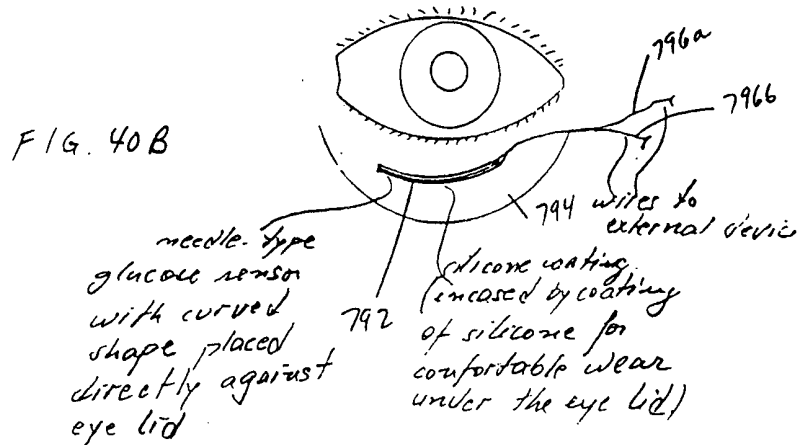 796a
796b
FIG. 40B
794
wires to
external device
needle-type
glucose sensor
with curved
shape placed
directly against
eye lid
792
silicone coating
(encased by coating
of silicone for
confortable wear
under the eye lid)